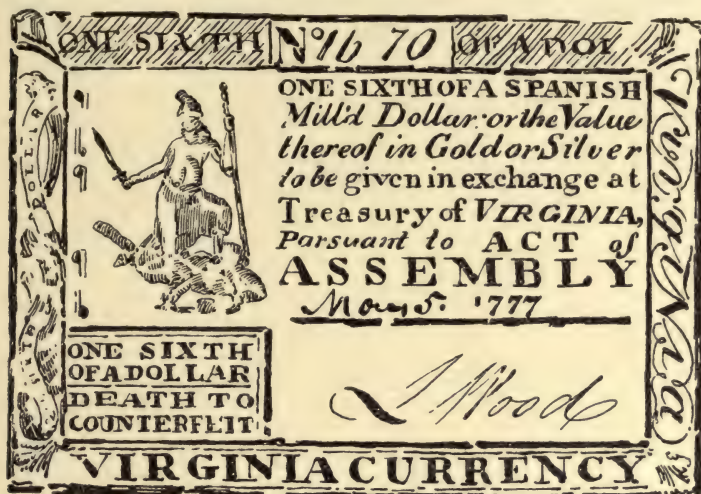 ONE SIXTH
No 1670
OF A DOL
ONE SIXTH OF A SPANISH
Mill'd Dollar: or the Value
thereof in Gold or Silver
to be given in exchange at
Treasury of VIRGINIA,
Parsuant to ACT of
ASSEMBLY
May 5. 1777
ONE SIXTH
OF A DOLLAR
DEATH TO
COUNTERFEIT
J Wood
DOLLAR
VirgiNia
VIRGINIA CURRENCY